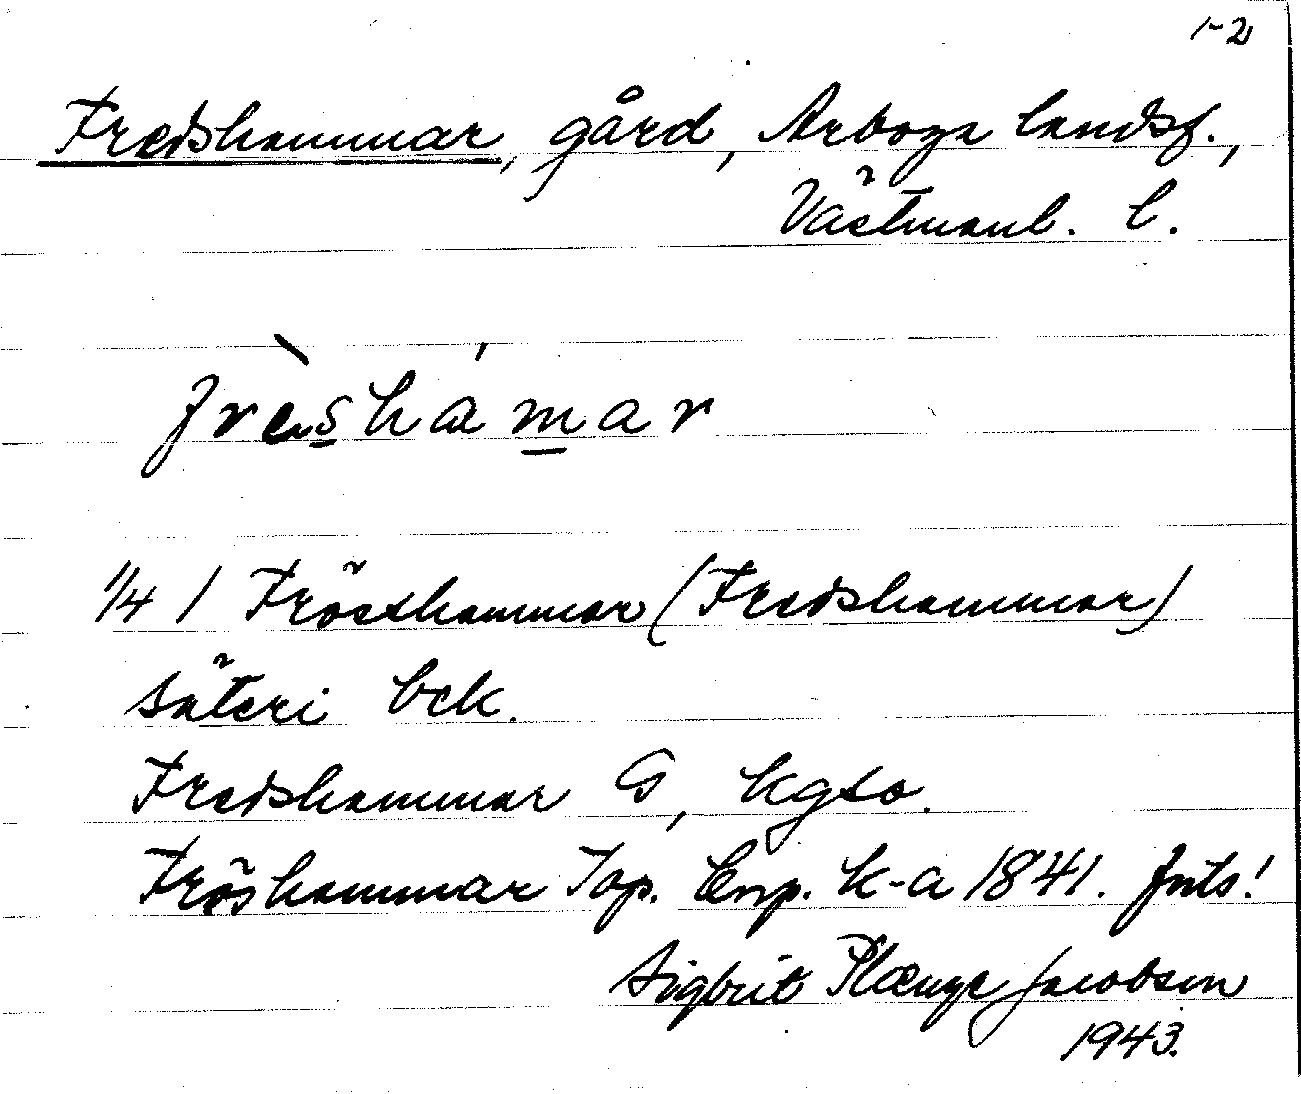 1-2
Fredshammar, gård, Arboga landsf.,
Västmanl. l.
frès̲hám̲ar
1/4 1 Frösthammar (Fredshammar)
säteri
Fredshammar G,
Fröshammar Top. k-a 1841.
Sigbrit Plænge Jacobson
1943.